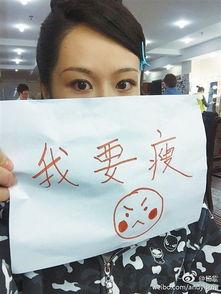 我要瘦
@杨紫
weibo.com/andyyang